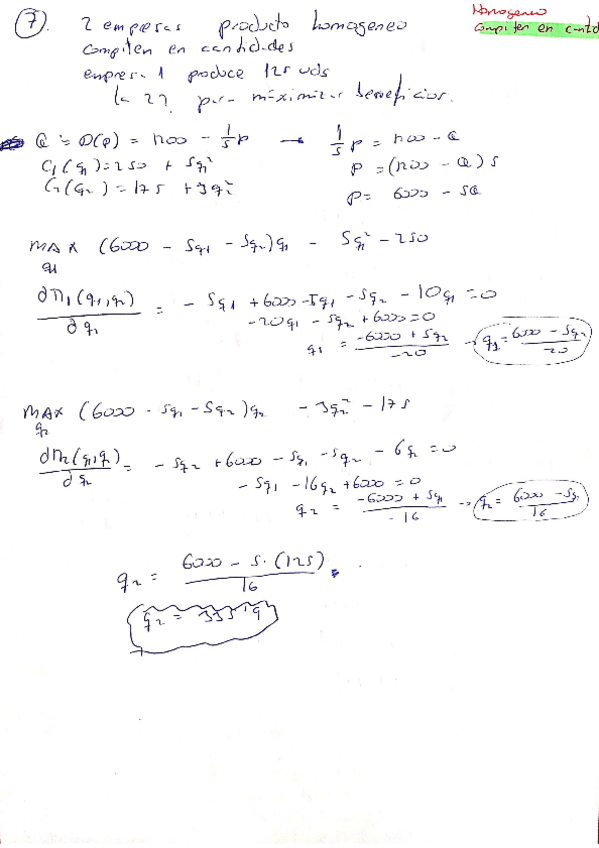 Homogeneo
compiten en cantd
7. 2 empresas producto homogeneo
compiten en cantidades
empresa 1 produce 125 uds
la 2?? para maximizar beneficios.
Q = D(p) = 1200 - 1/5 p → 1/5 p = 1200 - Q
C1(q1) = 250 + 5q1² p = (1200 - Q) 5
C2(q2) = 175 + 3q2² p = 6000 - 5Q
MAX (6000 - 5q1 - 5q2)q1 - 5q1² - 250
q1
dπ1(q1,q2)/dq1 = - 5q1 + 6000 - 5q1 - 5q2 - 10q1 = 0
-20q1 - 5q2 + 6000 = 0
q1 = (-6000 + 5q2)/-20 → q1 = (6000 - 5q2)/20
MAX (6000 - 5q1 - 5q2)q2 - 3q2² - 175
q2
dπ2(q1,q2)/dq2 = - 5q2 + 6000 - 5q1 - 5q2 - 6q2 = 0
- 5q1 - 16q2 + 6000 = 0
q2 = (-6000 + 5q1)/-16 → q2 = (6000 - 5q1)/16
q2 = (6000 - 5·(125))/16
q2 =